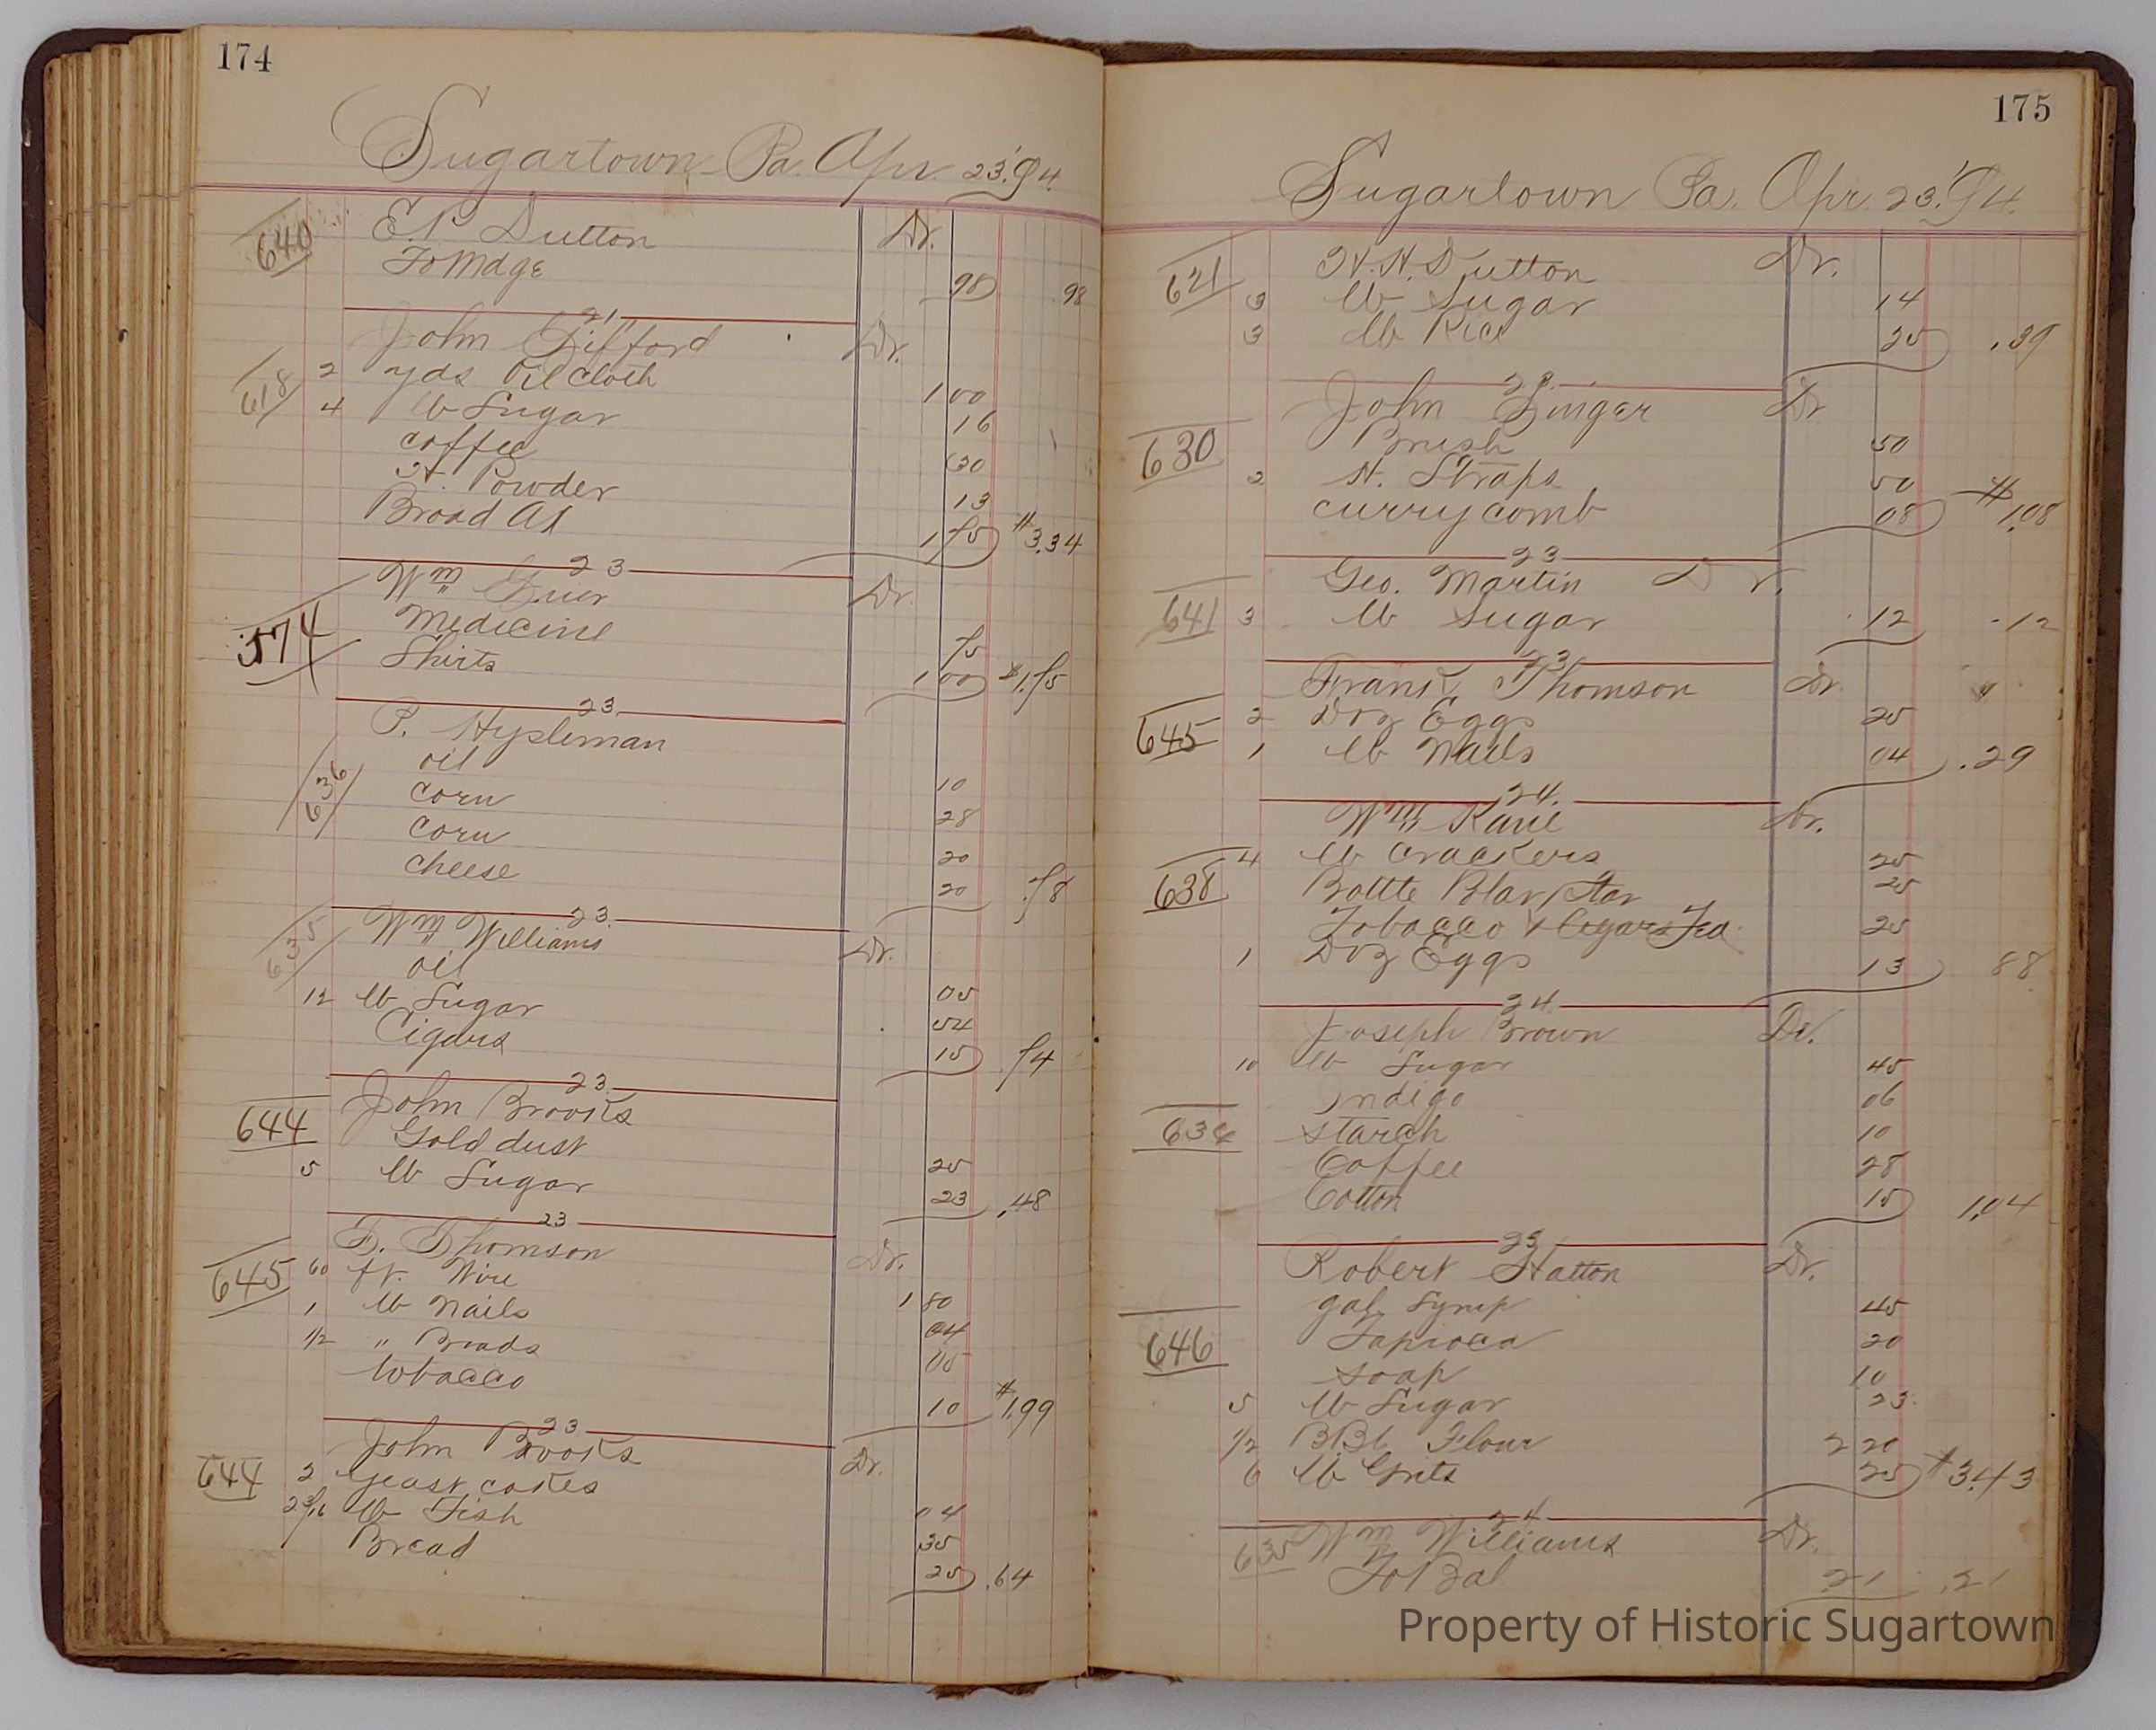 174
Sugartown Pa. Apr. 23. '94.
640 E. P. Dutton Dr.
To Mdge 98 .98
21
John Gifford Dr.
618 2 yds Oil Cloth 1 00
4 lb Sugar 16
coffee 30
H. Powder 13
Broad Ax 1 75 $3.34
23
Wm Grier Dr.
574 Medicine 75
Shirts 1 00 $1.75
23
P. Hypleman
oil 10
636 corn 28
corn 20
cheese 20 .78
23
635 Wm Williams Dr.
oil 05
12 lb Sugar 54
Cigars 15 74
23
644 John Brooks
Gold dust 25
5 lb Sugar 23 .48
23
F. Thomson Dr.
645 60 ft. Wire 1 80
1 lb nails 04
1/2 " Brads 05
tobacco 10 $1.99
23
John Brooks Dr.
644 2 yeast cakes 04
lb Fish 35
Bread 25 .64
175
Sugartown Pa. Apr. 23. '94.
621 H. H. Dutton Dr.
3 lb Sugar 14
3 lb Rice 25 .39
John Ginger Dr
630 Brush 50
2 H. Straps 50
curry comb 08 $1.08
23
Geo. Martin Dr.
641 3 lb Sugar .12 .12
23
Frank Thomson Dr
645 2 Doz Eggs 25
1 lb Nails 04 .29
24.
Wm Kane Dr.
638 4 lb crackers 25
Bottle 25
Tobacco & Cigars 25
1 Doz Eggs 13 88
24.
Joseph Brown Dr.
10 lb Sugar 45
Indigo 06
634 Starch 10
Coffee 28
Cotton 15 1.04
23
Robert Hatton Dr.
gal. Syrup 45
646 Tapioca 20
soap 10
5 lb Sugar 23
1/2 BBl Flour 2 20
6 lb Grits 25 $3.43
24
635 Wm Williams Dr.
To Bal .21 .21
Property of Historic Sugartown